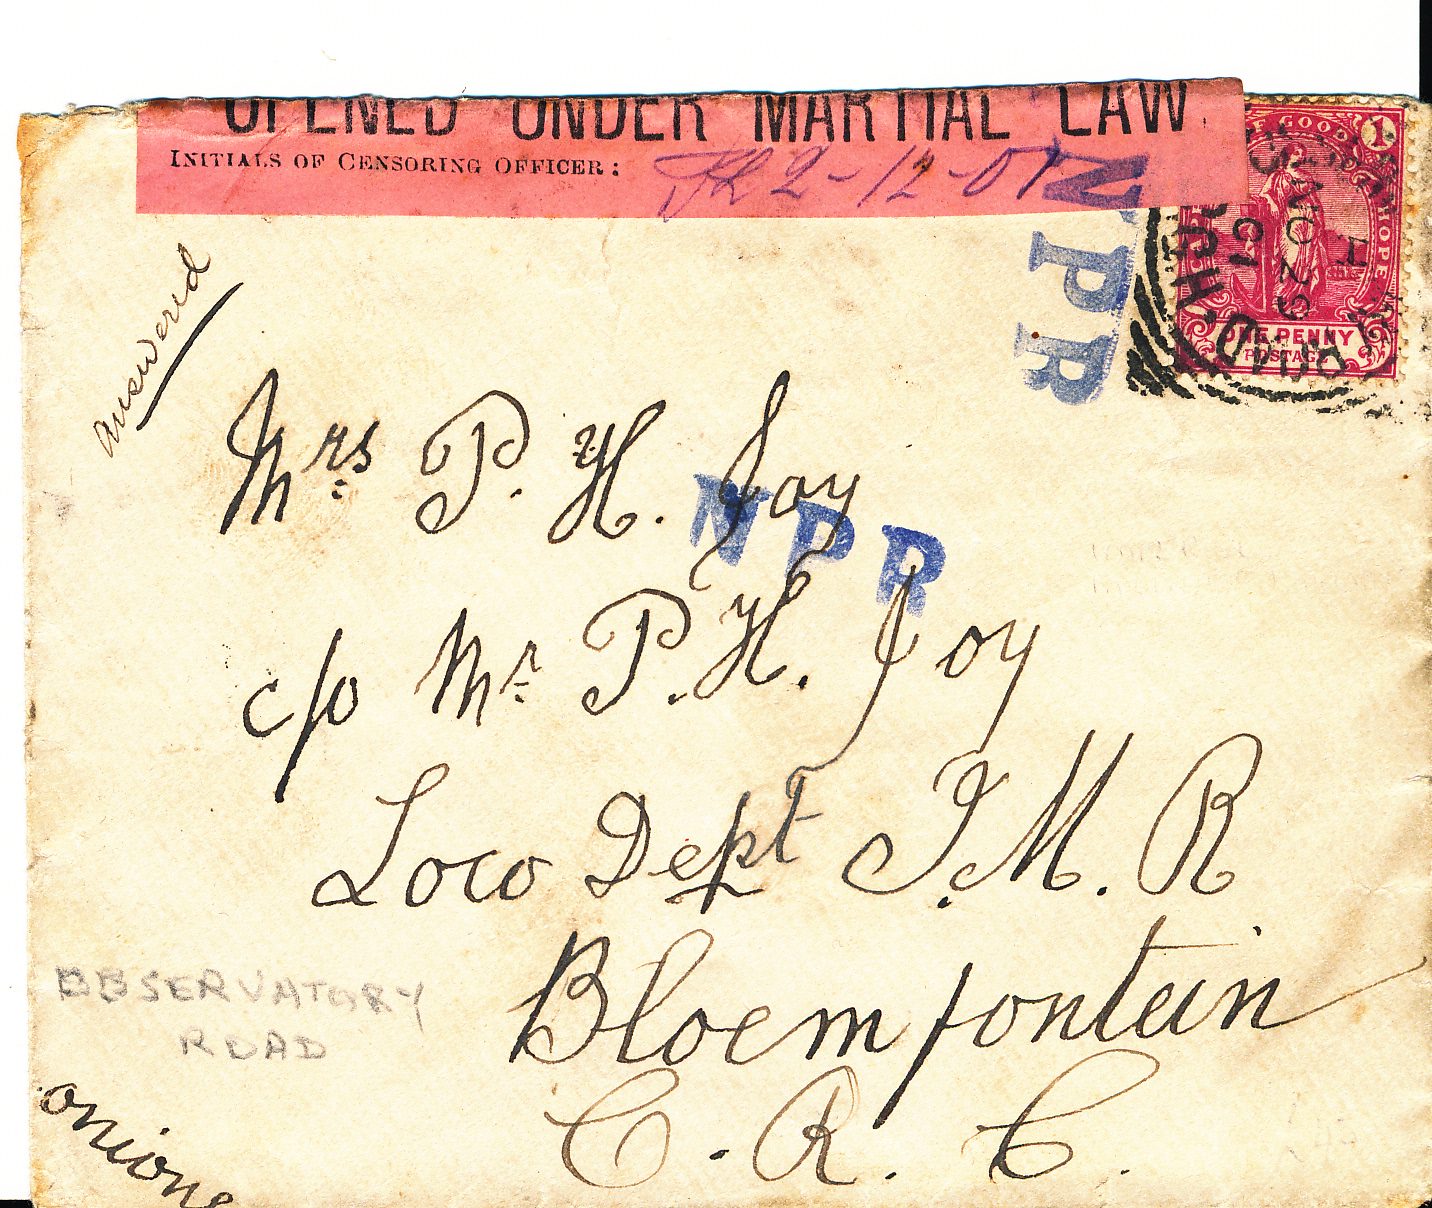 OPENED UNDER MARTIAL LAW
INITIALS OF CENSORING OFFICER: 2-12-01
OF GOOD HOPE
1
ONE PENNY
POSTAGE
NO 29
01
NPR
answered
Mrs P. H. Joy
NPR
c/o Mr P. H. Joy
Loco Dept I.M.R
Bloemfontein
O.R.C.
OBSERVATORY
ROAD
onions